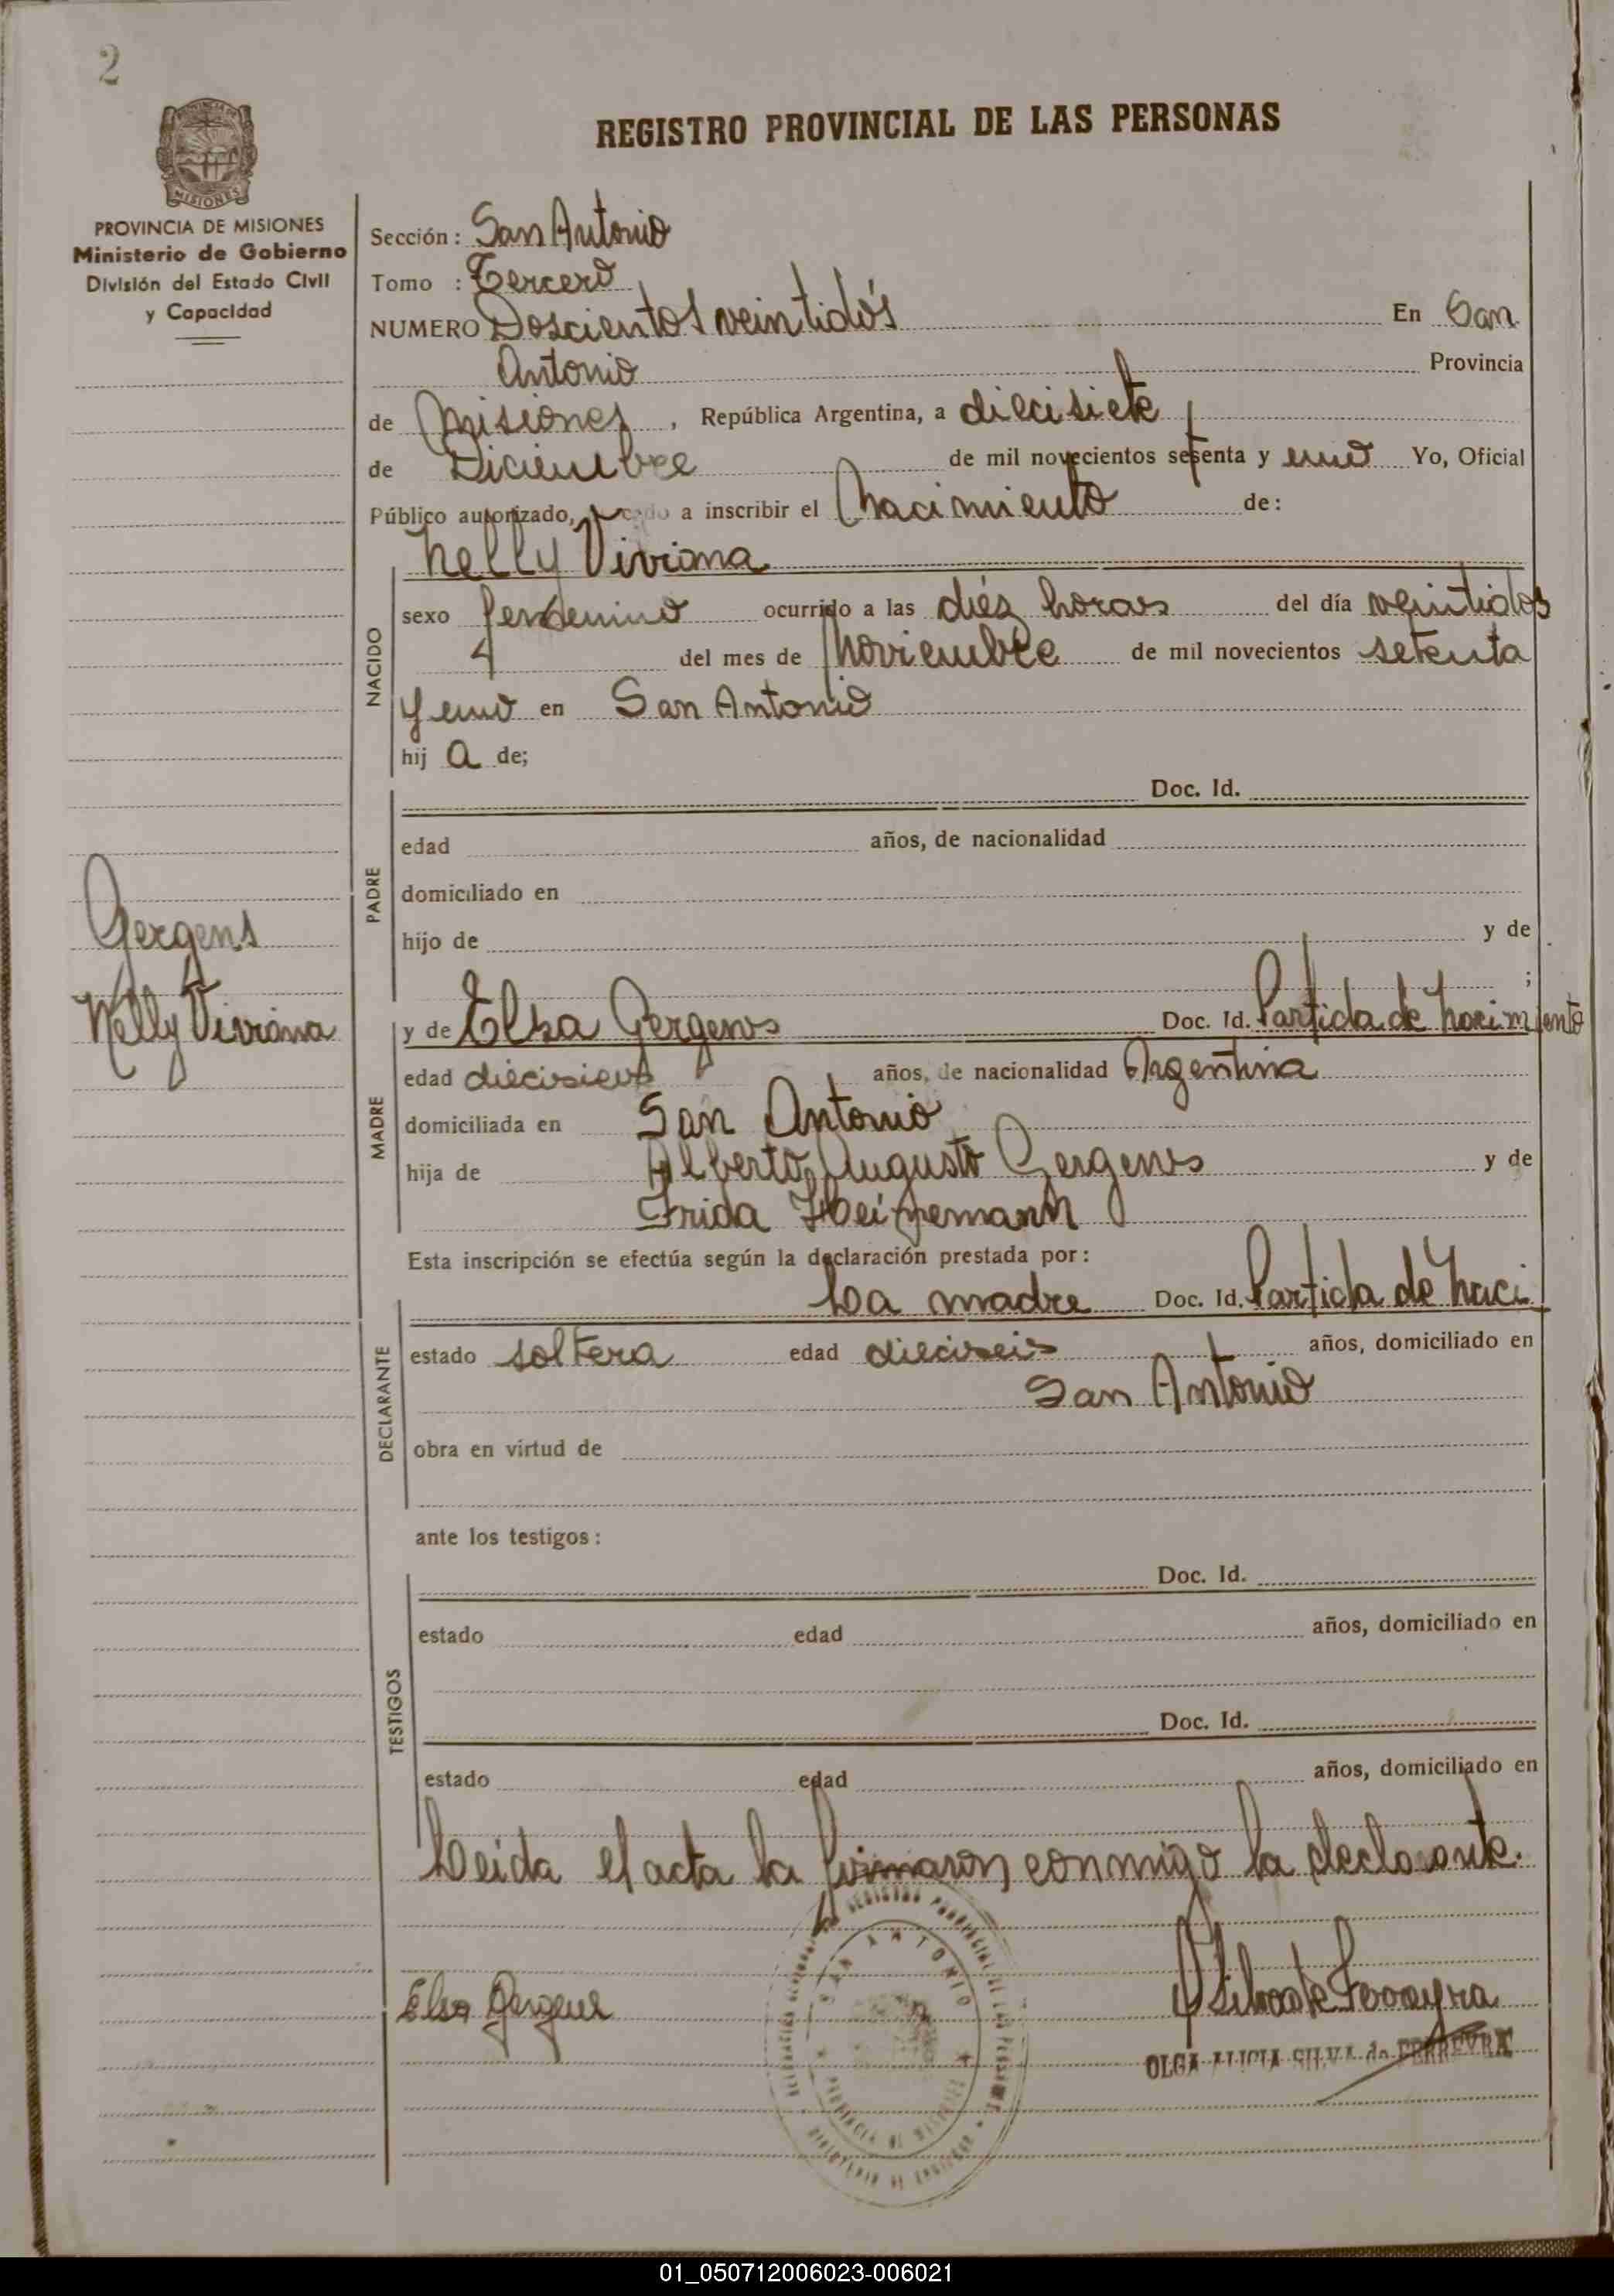 2
REGISTRO PROVINCIAL DE LAS PERSONAS
PROVINCIA DE MISIONES
MISIONES
PROVINCIA DE MISIONES
Ministerio de Gobierno
División del Estado Civil
y Capacidad
Sección: San Antonio
Tomo : Tercero
NUMERO Doscientos veintidós En San
Antonio Provincia
de Misiones, República Argentina, a diecisiete
de Diciembre de mil novecientos setenta y uno Yo, Oficial
Público autorizado, procedo a inscribir el Nacimiento de:
Nelly Viviana
NACIDO
sexo femenino ocurrido a las diéz horas del día veintidos
del mes de Noviembre de mil novecientos setenta
y uno en San Antonio
hij a de;
PADRE
Doc. Id.
edad años, de nacionalidad
domiciliado en
hijo de y de
;
Gergens
Nelly Viviana
MADRE
y de Elsa Gergens Doc. Id. Partida de Nacimiento
edad dieciseis años, de nacionalidad Argentina
domiciliada en San Antonio
hija de Alberto Augusto Gergens y de
Frida Heinemann
Esta inscripción se efectúa según la declaración prestada por:
DECLARANTE
La madre Doc. Id. Partida de Naci
estado soltera edad dieciseis años, domiciliado en
San Antonio
obra en virtud de
ante los testigos:
TESTIGOS
Doc. Id.
estado edad años, domiciliado en
Doc. Id.
estado edad años, domiciliado en
Leida el acta la firmaron conmigo la declarante.
REGISTRO PROVINCIAL DE LAS PERSONAS
SAN ANTONIO
PROVINCIA DE MISIONES
MINISTERIO DE GOBIERNO
Elsa Gergens
OSilva de Ferreyra
OLGA ALICIA SILVA de FERREYRA
01_050712006023-006021